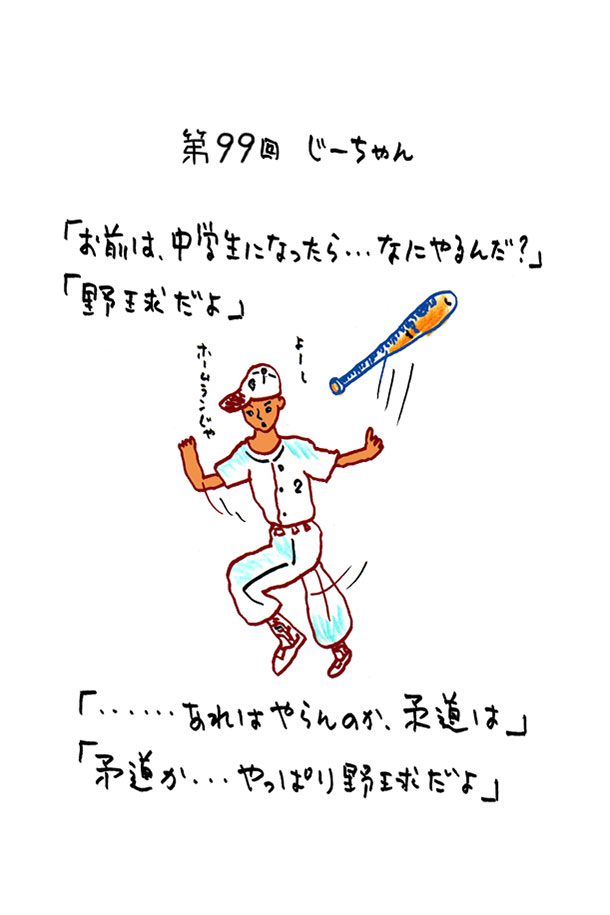 第99回 じーちゃん
「お前は、中学生になったら...なにやるんだ?」
「野球だよ」
よーし
ホームランじゃ
2
「......あれはやらんのか、柔道は」
「柔道か...やっぱり野球だよ」